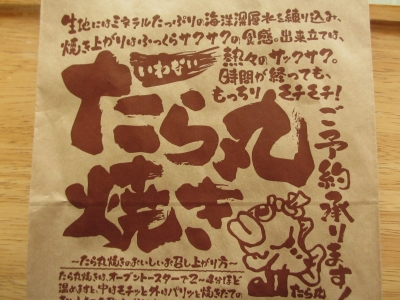 生地にはミネラルたっぷりの海洋深層水を練り込み、
焼き上がりはふっくらサクサクの食感。出来立ては、
熱々のサックサク。
時間が経っても、
もっちりモチモチ!
いわない
たら丸
焼き
ご予約承ります!
たら丸
〜たら丸焼きのおいしいお召し上がり方〜
たら丸焼きは、オーブントースターで2〜4分ほど
温めますと、中はモチっと外はパリッと焼きたての